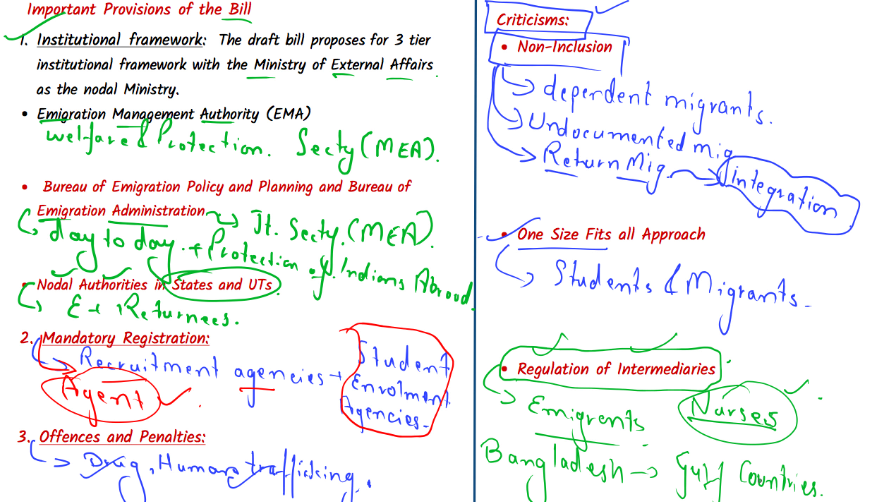 Important Provisions of the Bill
1. Institutional framework: The draft bill proposes for 3 tier
institutional framework with the Ministry of External Affairs
as the nodal Ministry.
• Emigration Management Authority (EMA)
Welfare & Protection. Secty (MEA).
• Bureau of Emigration Policy and Planning and Bureau of
Emigration Administration → Jt. Secty. (MEA).
day to day. + Protection of Indians Abroad.
• Nodal Authorities in States and UTs.
E + Returnees.
2. Mandatory Registration:
Recruitment agencies + Student
Enrolment
Agencies.
Agent
3. Offences and Penalties:
Drug, Human trafficking.
Criticisms:
• Non-Inclusion
dependent migrants.
Undocumented mig
Return Mig. → integration
• One Size Fits all Approach
Students & Migrants.
• Regulation of Intermediaries
Emigrents Nurses
Bangladesh → Gulf Countries.